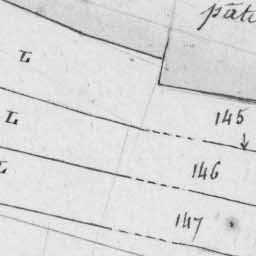 pât
L
L
145
L
146
147